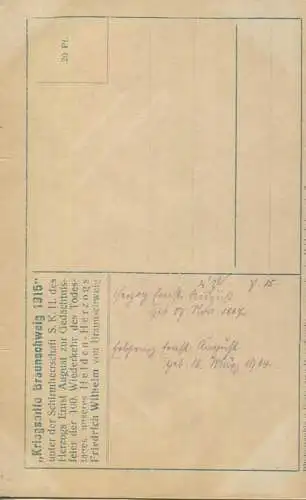 20 Pf.
„Kriegshilfe Braunschweig 1915"
unter der Schirmherrschaft S. K. H. des
Herzogs Ernst August zur Gedächtnis-
feier der 100. Wiederkehr des Todes-
tages unseres Helden-Herzogs
Friedrich Wilhelm von Braunschweig
Herzog Ernst August
geb 17 Nov 1887.
Erbprinz Ernst August
geb. 18. März 1914.